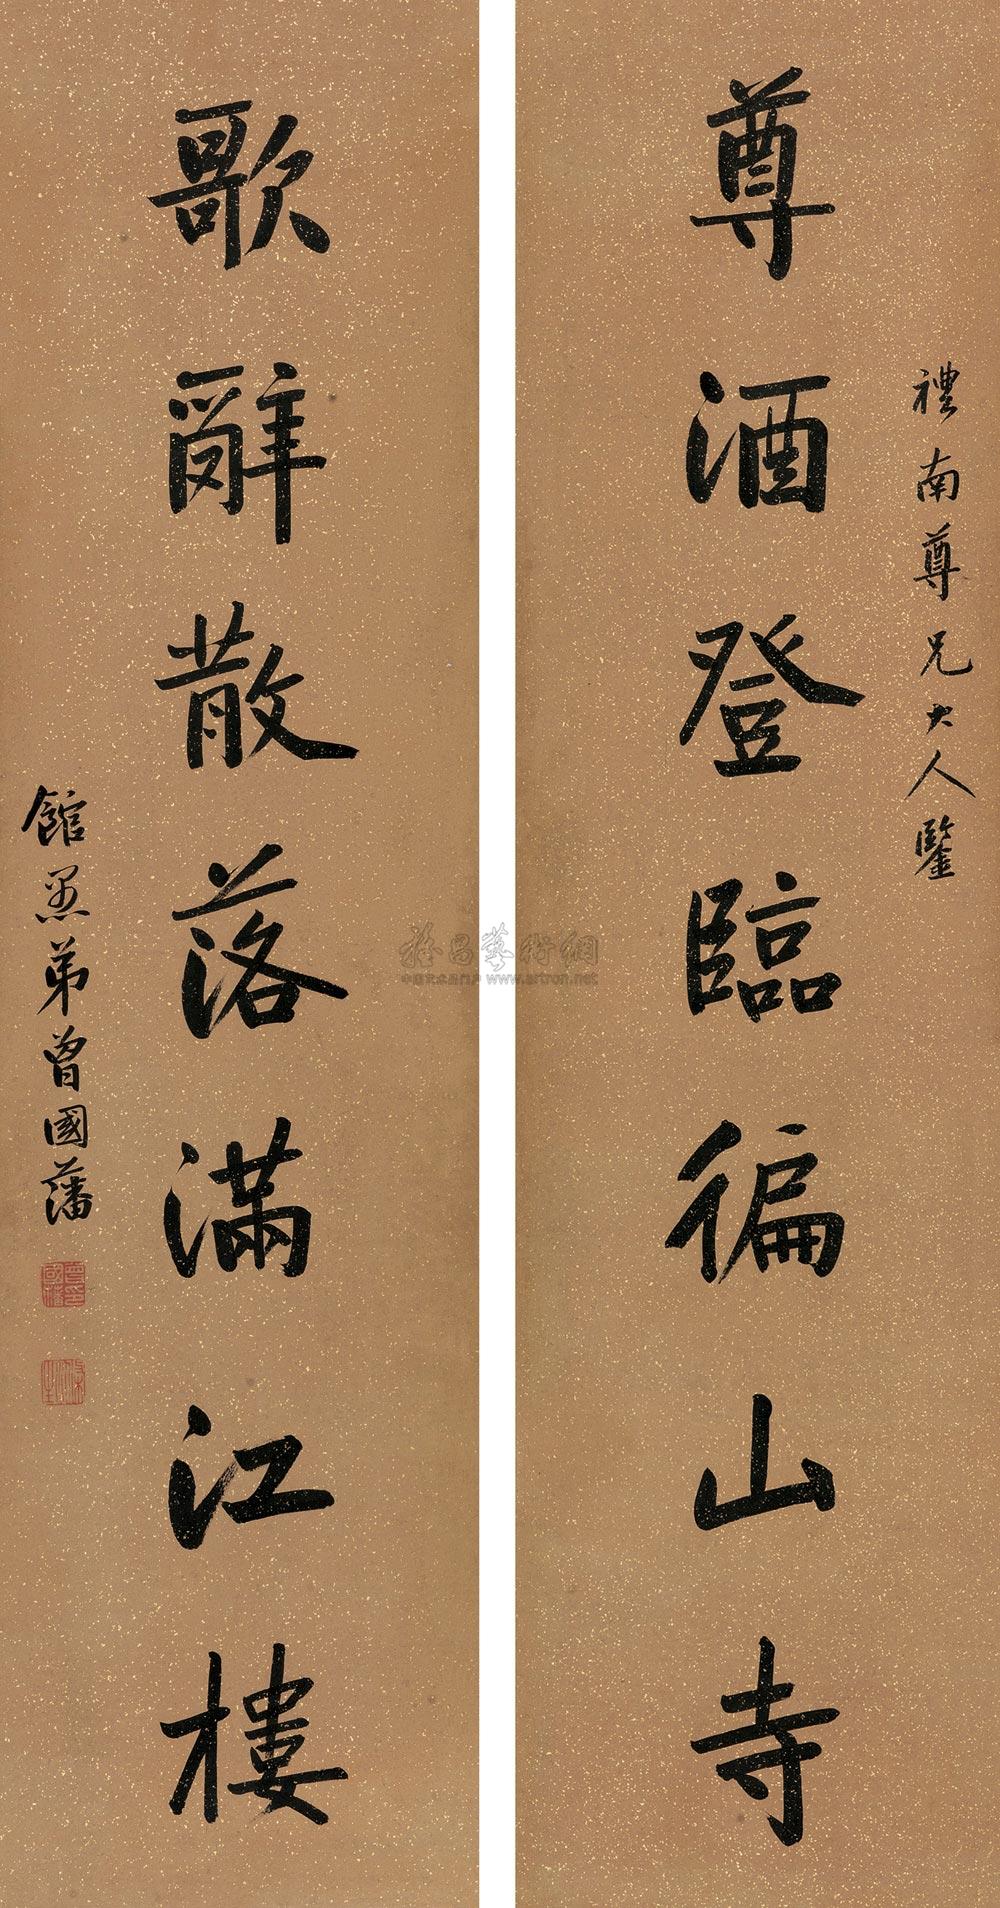 禮南尊兄大人鑒
尊酒登臨徧山寺
歌辭散落滿江樓
館愚弟曾國藩
www.artron.net